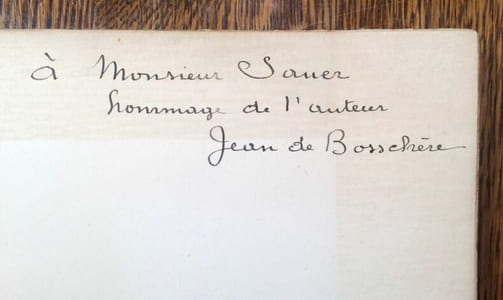 à Monsieur Sauer
hommage de l'auteur
Jean de Bosschère